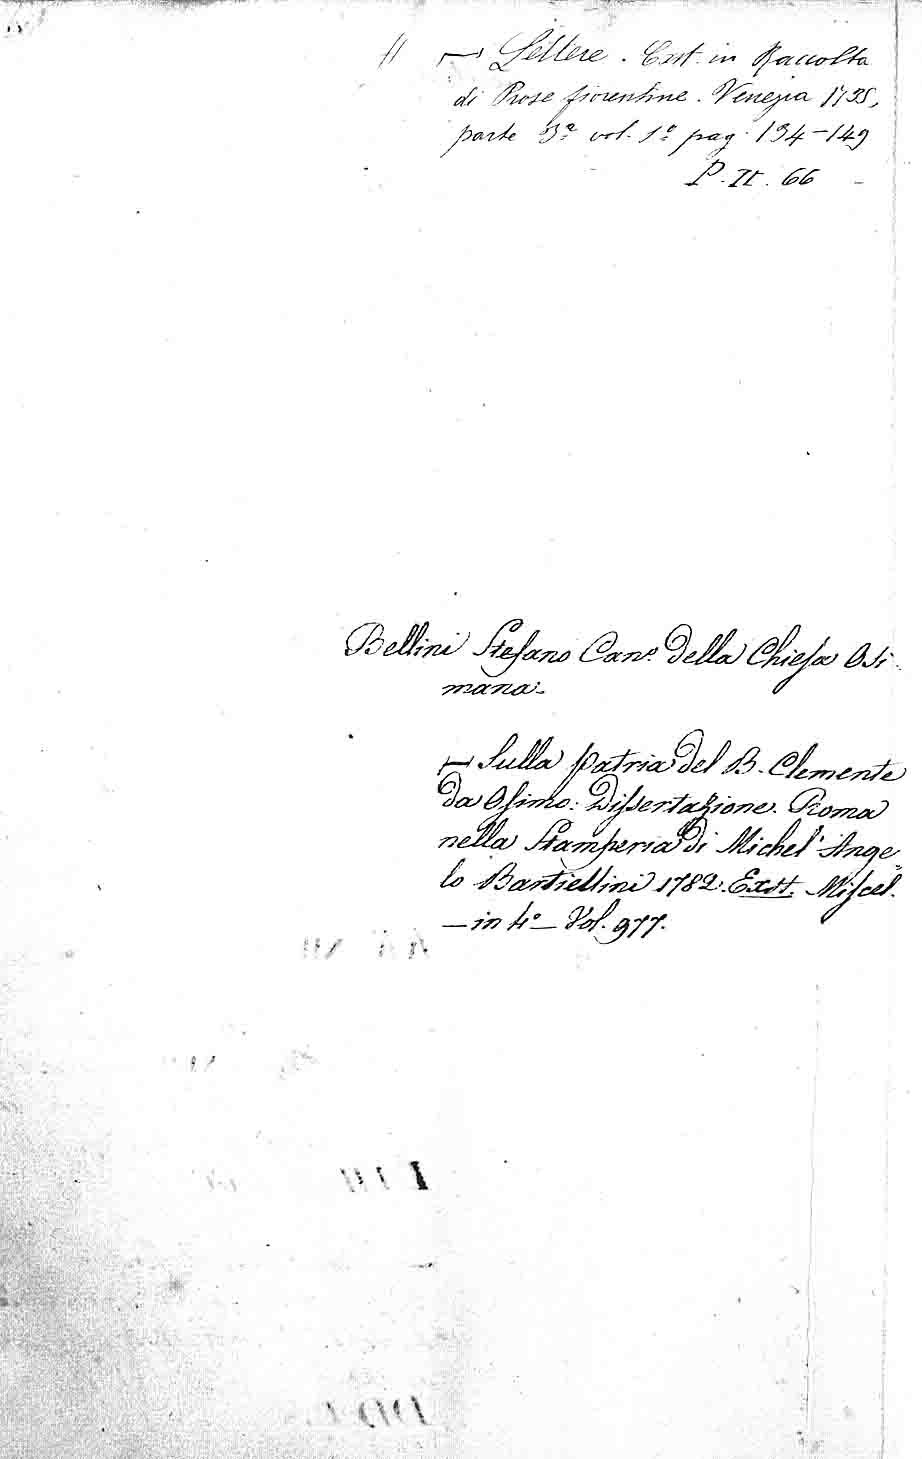 // — Lettere. Exst. in Raccolta
di Prose fiorentine. Venezia 1735,
parte 3ª vol. 1º pag. 134-149
P. It. 66
Bellini Stefano Canº. della Chiesa Osi
mana.
— Sulla patria del B. Clemente
da Osimo: Dissertazione. Roma
nella Stamperia di Michel' Ange=
lo Barbiellini 1782. Exst. Miscel.
— in 4º — Vol. 977.